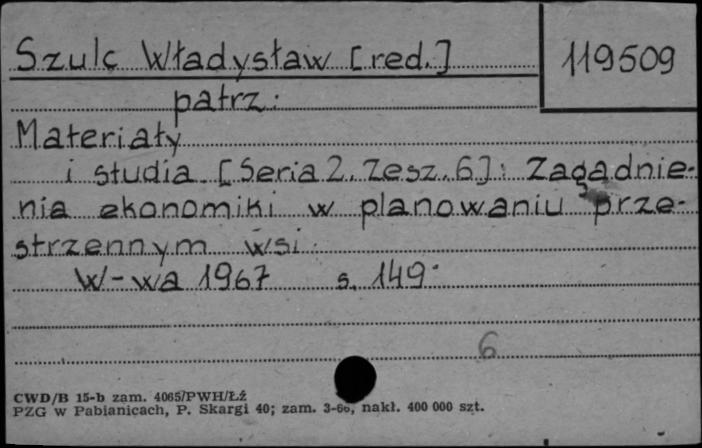 Szulc Władysław [red.]
119509
patrz:
Materiały
i studia [Seria 2. Zesz. 6]: Zagadnie-
nia ekonomiki w planowaniu prze-
strzennym wsi.
W-wa 1967 s. 149.
6
CWD/B 15-b zam. 4065/PWH/Łź
PZG w Pabianicach, P. Skargi 40; zam. 3-66, nakł. 400 000 szt.